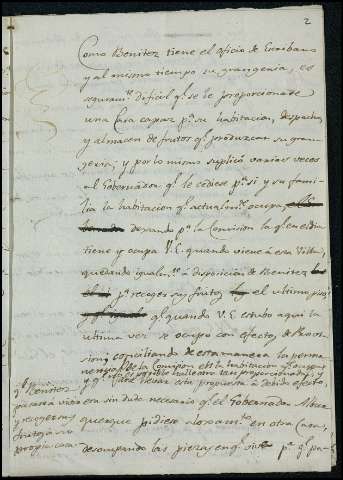 2
Como Benitez tiene el oficio de Escribano
y al mismo tiempo su grangeria, es
seguram.te dificil q.e se le proporcione de
una Casa capaz p.a su habitacion, despacho,
y almacen de frutos q.e produzcan su gran
geria; y por lo mismo suplicó varias veces
al Gobernador q.e le cediese p.a si y su fami-
lia la habitacion q.e actualm.te ocupa
dexando p.a la Comision la q.e en el dia
tiene y ocupa V.E. quando viene á esta Villa,
quedando igualm.te á disposicion de Benitez
p.a recoger sus frutos el ultimo piso
q.e quando V.E. estubo aqui la
ultima vez se ocupó con efectos de Provi-
sion; conciliando de esta manera la perma-
nencia de la Comision en la habitacion
y q.e
Para llevar esta propuesta á debido efecto,
era sin duda necesario q.e el Gobernador
quisiese alojam.to en otra Casa,
desocupando las piezas en q.e vive p.a q.e pa-
q.e Benitez
pasara á vivir
y recoger sus
frutos á su
propia casa